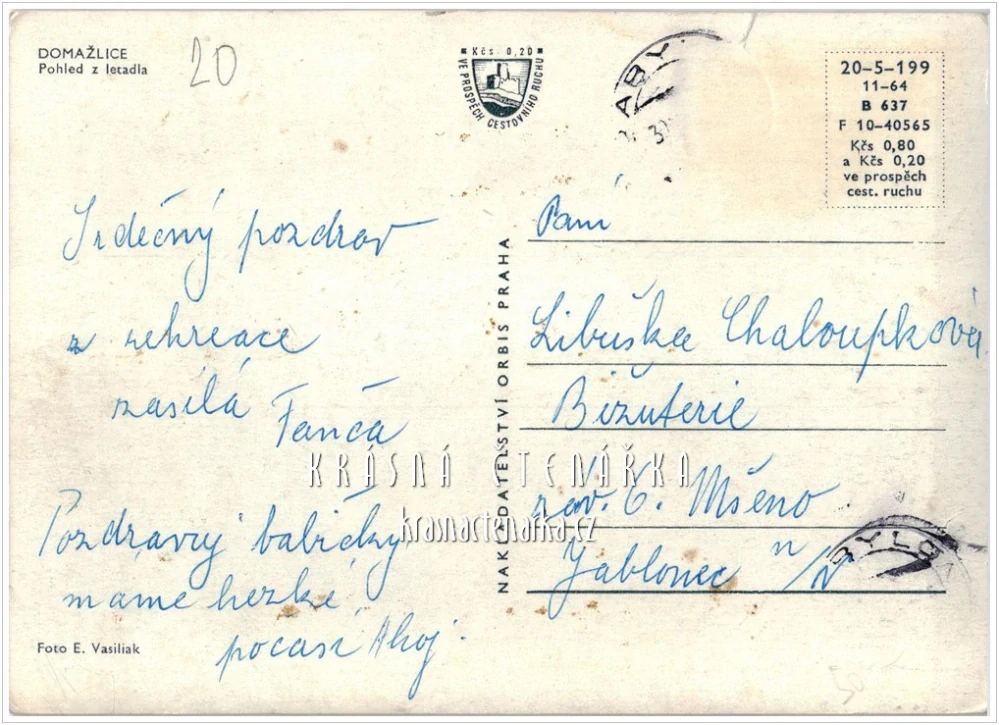 DOMAŽLICE
Pohled z letadla
20
Kčs 0,20
VE PROSPĚCH CESTOVNÍHO RUCHU
20-5-199
11-64
B 637
F 10-40565
Kčs 0,80
a Kčs 0,20
ve prospěch
cest. ruchu
Srdečný pozdrav
z rekreace
zasílá Fanča
Pozdravuj babičky
máme hezké
počasí Ahoj.
Foto E. Vasiliak
NAKLADATELSTVÍ ORBIS PRAHA
Paní
Libuška Chaloupková
Bižuterie
záv. 6. Mšeno
Jablonec n/N
KRÁSNÁ ČTENÁŘKA
krasnactenarka.cz